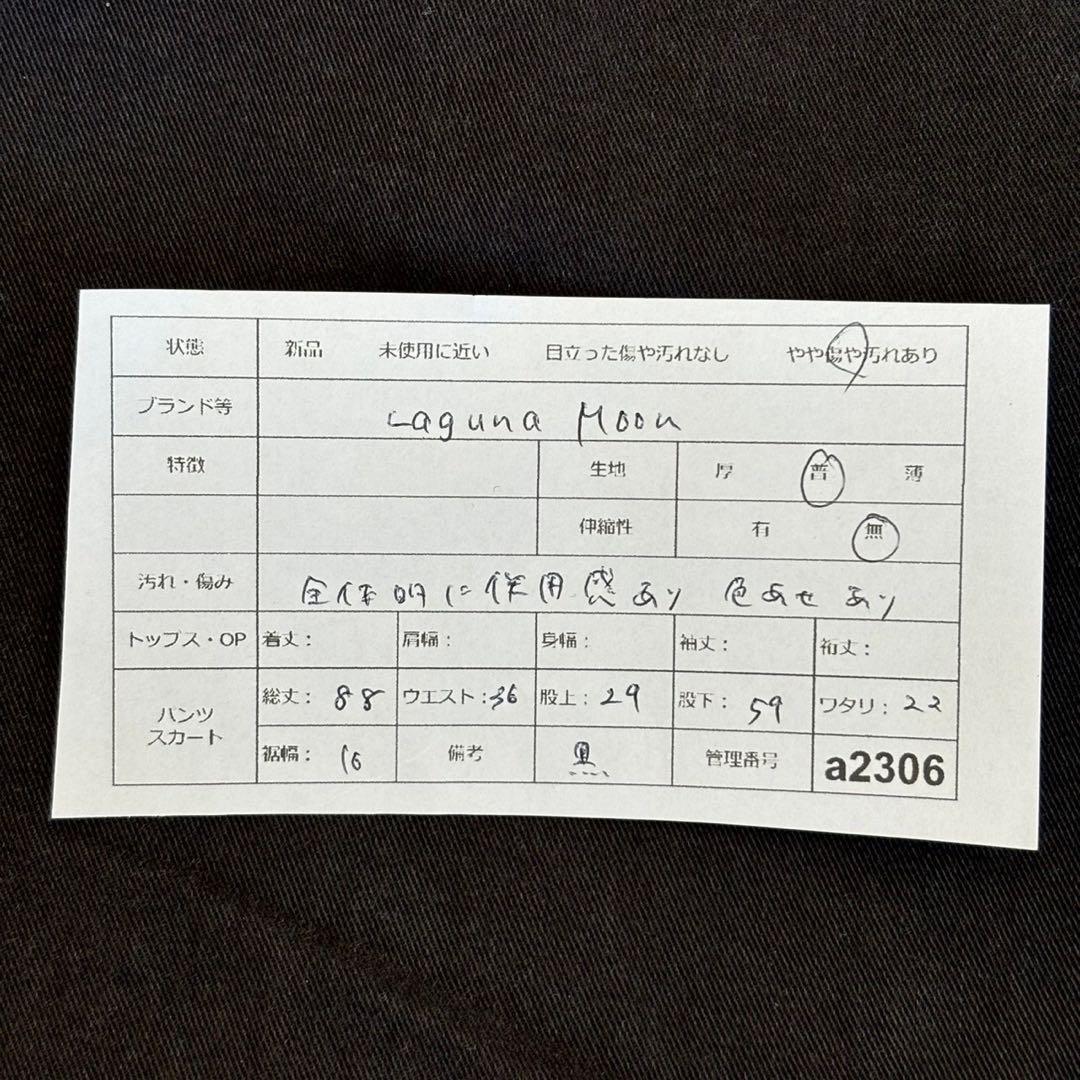 状態 新品 未使用に近い 目立った傷や汚れなし やや傷や汚れあり
ブランド等 Laguna Moon
特徴 生地 厚 普 薄
伸縮性 有 無
汚れ・傷み 全体的に使用感あり 色あせあり
トップス・OP 着丈: 肩幅: 身幅: 袖丈: 裄丈:
パンツ スカート 総丈: 88 ウエスト:36 股上: 29 股下: 59 ワタリ: 22
裾幅: 16 備考 黒 管理番号 a2306